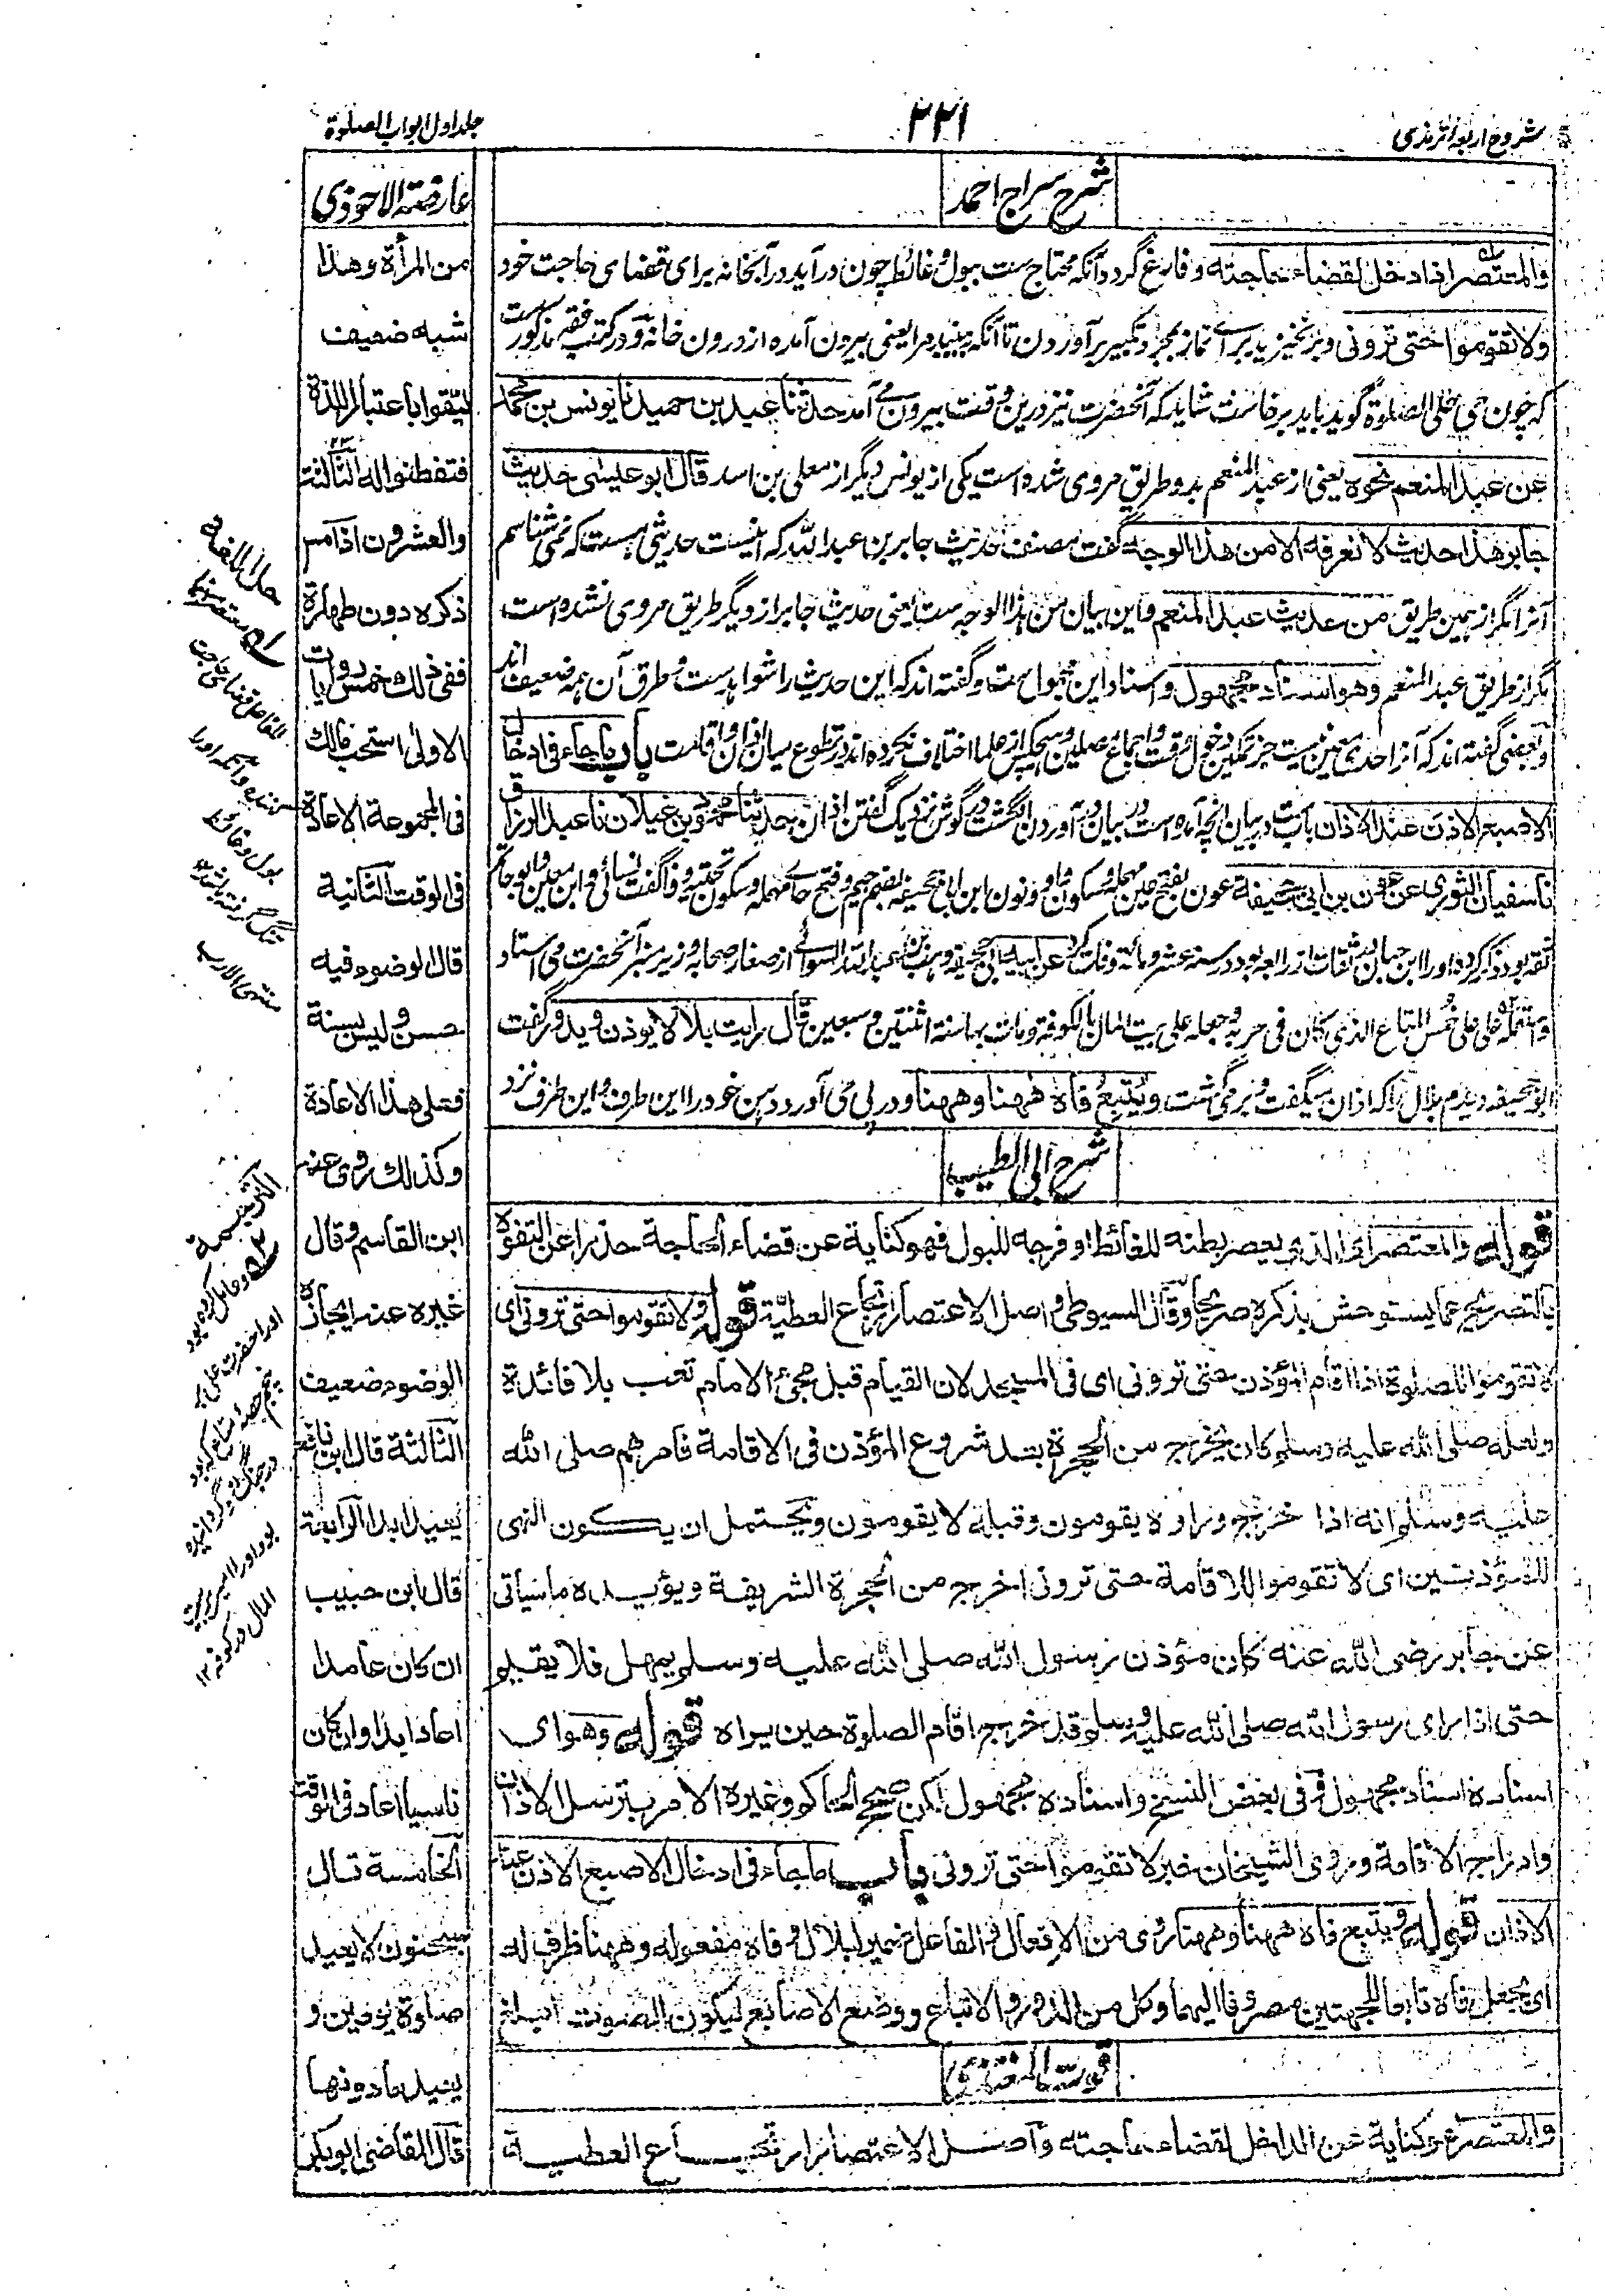 شروح اربعہ ترمذی
۲۲۱
جلد اول ابواب الصلوة
شرح سراج احمد
والمعتصر اذا دخل لقضاء حاجته وفارغ گردد آنکه محتاج ست ببول وغائط چون درآید در آبخانه برای قضای حاجت خود
ولا تقوموا حتی ترونی وبر نخیزید برای نماز بمجرد تکبیر برآوردن تا آنکه ببینید مرا یعنی بیرون آمده از درون خانه و در کتب فقه مذکور ست
که چون حی علی الصلوة گوید باید برخاست شاید که آنحضرت نیز درین وقت بیرون می آمد حدثنا عبد بن حمید نا یونس بن محمد
عن عبد المنعم نحوه یعنی از عبد المنعم بدو طریق مروی شده است یکی از یونس دیگر از معلی بن اسد قال ابو عیسی حدیث
جابر هذا حدیث لا نعرفه الا من هذا الوجه گفت مصنف حدیث جابر بن عبد الله که اینست حدیثی ست که نمی شناسم
آنرا مگر از همین طریق من حدیث عبد المنعم واین بیان من هذا الوجه ست یعنی حدیث جابر از دیگر طریق مروی نشده است
مگر از طریق عبد المنعم وهو اسناد مجهول واسناد این مجهول ست وگفته اند که این حدیث را شواهد ست وطرق آن همه ضعیف اند
وبعضی گفته اند که آنرا حدی معین نیست جز تمکین دخول وقت واجتماع مصلین وهیچکس از علما اختلاف نکرده اند در تطوع میان اذان واقامت باب ما جاء فی ادخال
الاصبع الاذن عند الاذان باب در بیان انچه آمده است در بیان درآوردن انگشت در گوش نزدیک گفتن اذان حدثنا محمود بن غیلان نا عبد الرزاق
نا سفیان الثوری عن عون بن ابی جحیفة عون بفتح عین مهمله وسکون واو ونون ابن ابی جحیفه بضم جیم وفتح حای مهمله وسکون تحتیه وفا گفت نسائی وابن معین وابو حاتم
ثقه بود ذکر کرد او را ابن حبان در ثقات از رابعه بود در سنه عشر ومائة وفات کرد عن ابیه ابی جحیفه وهب بن عبد الله السوائی از صغار صحابه وزیر منبر آنحضرت می استاد
واستعمله علی علی خمس المتاع الذی کان فی حربه وجعله علی بیت المال بالکوفة ومات بها سنة اثنتین وسبعین قال رایت بلالا یوذن ویدور گفت
ابو جحیفه دیدم بلال را که اذان میگفت ومیگشت ویتبع فاه ههنا وههنا ودر پی می آورد دهن خود را این طرف واین طرف نزد
شرح ابی الطیب
قوله والمعتصر ای الذی یعصر بطنه للغائط او فرجه للبول فهو کنایة عن قضاء الحاجة حذرا عن التفوه
بالتصریح عما یستوحش بذکره صریحا وقال السیوطی واصل الاعتصار ارتجاع العطیة قوله ولا تقوموا حتی ترونی ای
لا تقوموا للصلوة اذا اقام المؤذن حتی ترونی ای فی المسجد لان القیام قبل مجئ الامام تعب بلا فائدة
ولعله صلی الله علیه وسلم کان یخرج من الحجرة بعد شروع المؤذن فی الاقامة فامرهم صلی الله
علیه وسلم انه اذا خرج وراوه یقومون وقبله لا یقومون ویحتمل ان یکون النهی
للمؤذنین ای لا تقوموا للاقامة حتی ترونی اخرج من الحجرة الشریفة ویؤیده ما سیأتی
عن جابر رضی الله عنه کان مؤذن رسول الله صلی الله علیه وسلم یمهل فلا یقیم
حتی اذا رای رسول الله صلی الله علیه وسلم قد خرج اقام الصلوة حین یراه قوله وهو ای
اسناده اسناد مجهول وفی بعض النسخ واسناده مجهول لکن صحح الحاکم وغیره الامر بترسل الاذان
وادراج الاقامة وروی الشیخان خبر لا تقوموا حتی ترونی باب ما جاء فی ادخال الاصبع الاذن عند
الاذان قوله ویتبع فاه ههنا وههنا روی من الافعال والفاعل ضمیر لبلال وفاه مفعوله وههنا ظرف له
ای یجعل فاه تابعا للجهتین مصروفا الیهما وکل من الدور والاتباع ووضع الاصابع لیکون الصوت ابلغ
قوت المغتذی
والمعتصر هو کنایة عن الداخل لقضاء حاجته واصل الاعتصار ارتجاع العطیة
عارضة الاحوذی
من المرأة وهذا
شبه ضعیف
فتفطنوا له الثالثة
والعشرون اذا مس
ذکره دون طهارة
ففی ذلك خمس روایات
الاولی استحب مالك
فی المجموعة الاعادة
فی الوقت الثانیة
قال الوضوء فیه
حسن ولیس بسنة
فعلی هذا الاعادة
وکذلك روی عنه
ابن القاسم وقال
غیره عنه ایجازه
الوضوء ضعیف
الثالثة قال ابن نافع
یعید ابدا الرابعة
قال ابن حبیب
ان کان عامدا
اعاد ابدا وان کان
ناسیا اعاد فی الوقت
الخامسة قال
سحنون لا یعید
صلوة یومین و
یعید ما دونها
قال القاضی ابو بکر
حل اللغة
بول وغائط
منتهی الارب
الترجمة
اورا حضرت علی بر
المال در کوفه ۱۲